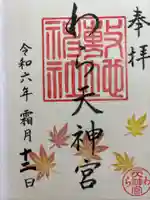 奉拝
敷地神社
わら天神宮
令和六年 霜月 十二日